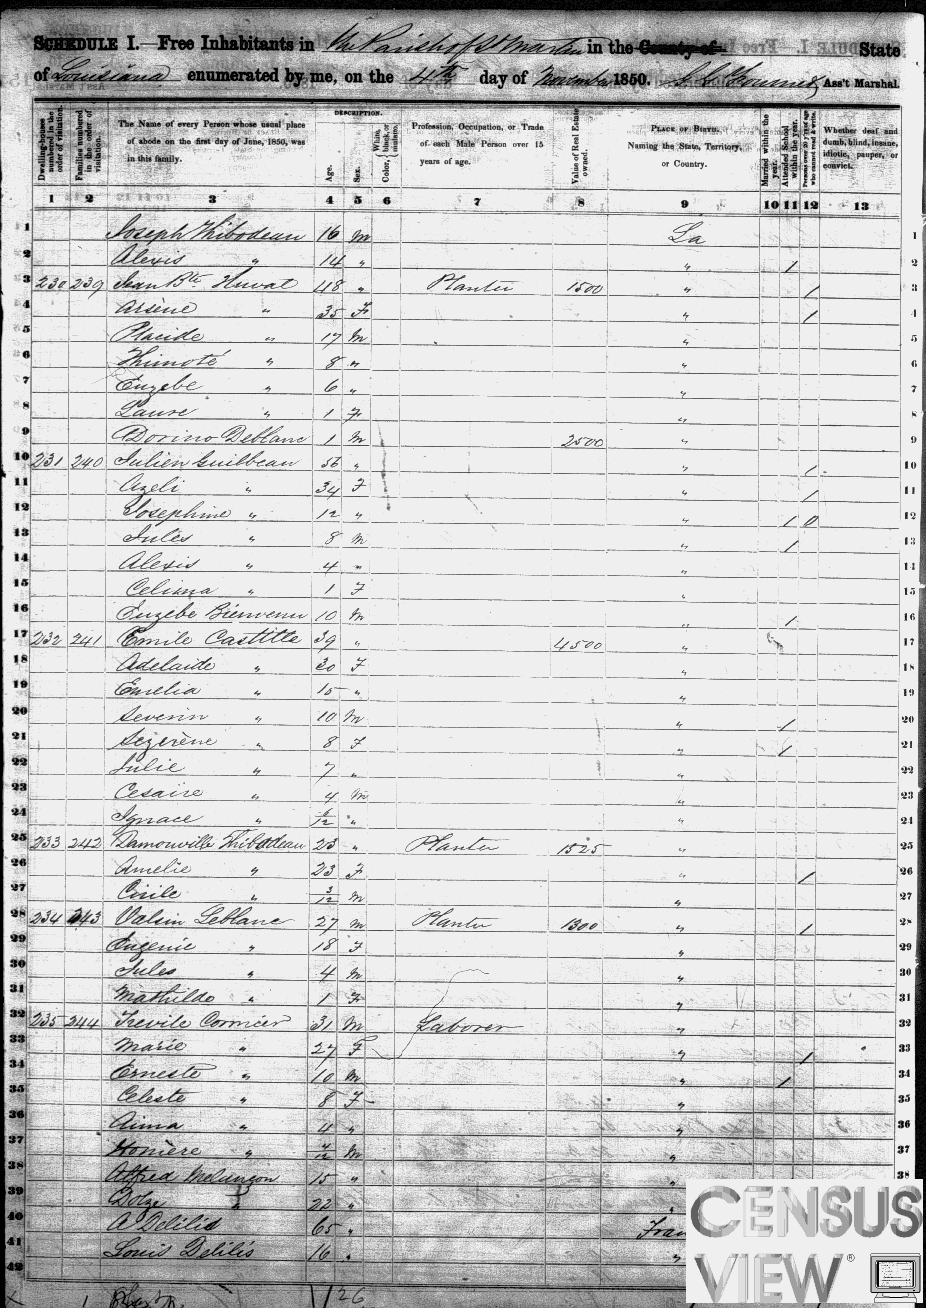 SCHEDULE I.—Free Inhabitants in the Parish of St Martin in the County of State
of Louisiana enumerated by me, on the 4th day of November 1850. Ass't Marshal.
Dwelling-houses numbered in the order of visitation.
Families numbered in the order of visitation.
The Name of every Person whose usual place of abode on the first day of June, 1850, was in this family.
DESCRIPTION.
Age.
Sex.
Color, White, black, or mulatto.
Profession, Occupation, or Trade of each Male Person over 15 years of age.
Value of Real Estate owned.
PLACE OF BIRTH. Naming the State, Territory, or Country.
Married within the year.
Attended School within the year.
Persons over 20 y'rs of age who cannot read & write.
Whether deaf and dumb, blind, insane, idiotic, pauper, or convict.
1 2 3 4 5 6 7 8 9 10 11 12 13
1 Joseph Thibodeau 16 M La 1
2 Alexis " 14 " " 1 2
3 230 239 Jean Bte Huval 48 " Planter 1500 " 1 3
4 Arsène " 35 F " 1 4
5 Placide " 17 M " 5
6 Thimoté " 8 " " 6
7 Euzebe " 6 " " 7
8 Laure " 1 F " 8
9 Dorino Deblanc 1 M 2500 " 9
10 231 240 Julien Guilbeau 56 " " 1 10
11 Azeli " 34 F " 1 11
12 Josephine " 12 " " 1 0 12
13 Jules " 8 M " 1 13
14 Alexis " 4 " " 14
15 Celima " 1 F " 15
16 Euzebe Bienvenu 10 M " 1 16
17 232 241 Emile Castille 39 " 4500 " 17
18 Adelaide " 30 F " 18
19 Emelia " 15 " " 19
20 Severin " 10 M " 1 20
21 Sezerène " 8 F " 1 21
22 Julie " 7 " " 22
23 Cesaire " 4 M " 23
24 Ignace " 6/12 " " 24
25 233 242 Damonville Thibodeau 23 " Planter 1525 " 25
26 Amelie " 23 F " 1 26
27 Cirile " 3/12 M " 27
28 234 243 Valsin Leblanc 27 M Planter 1300 " 1 28
29 Eugenie " 18 F " 29
30 Jules " 4 M " 30
31 Mathilde " 1 F " 31
32 235 244 Trevile Cormier 31 M Laborer " 32
33 Marie " 27 F " 1 33
34 Erneste " 10 M " 1 34
35 Celeste " 8 F " 35
36 Aima " 4 " " 36
37 Honière " 4/12 M " 37
38 Alfred Melançon 15 " " 38
39 Dolze " 22 " "
40 A Delilis 65 " Fran
41 Louis Delilis 16 " "
42
26
CENSUS
VIEW®